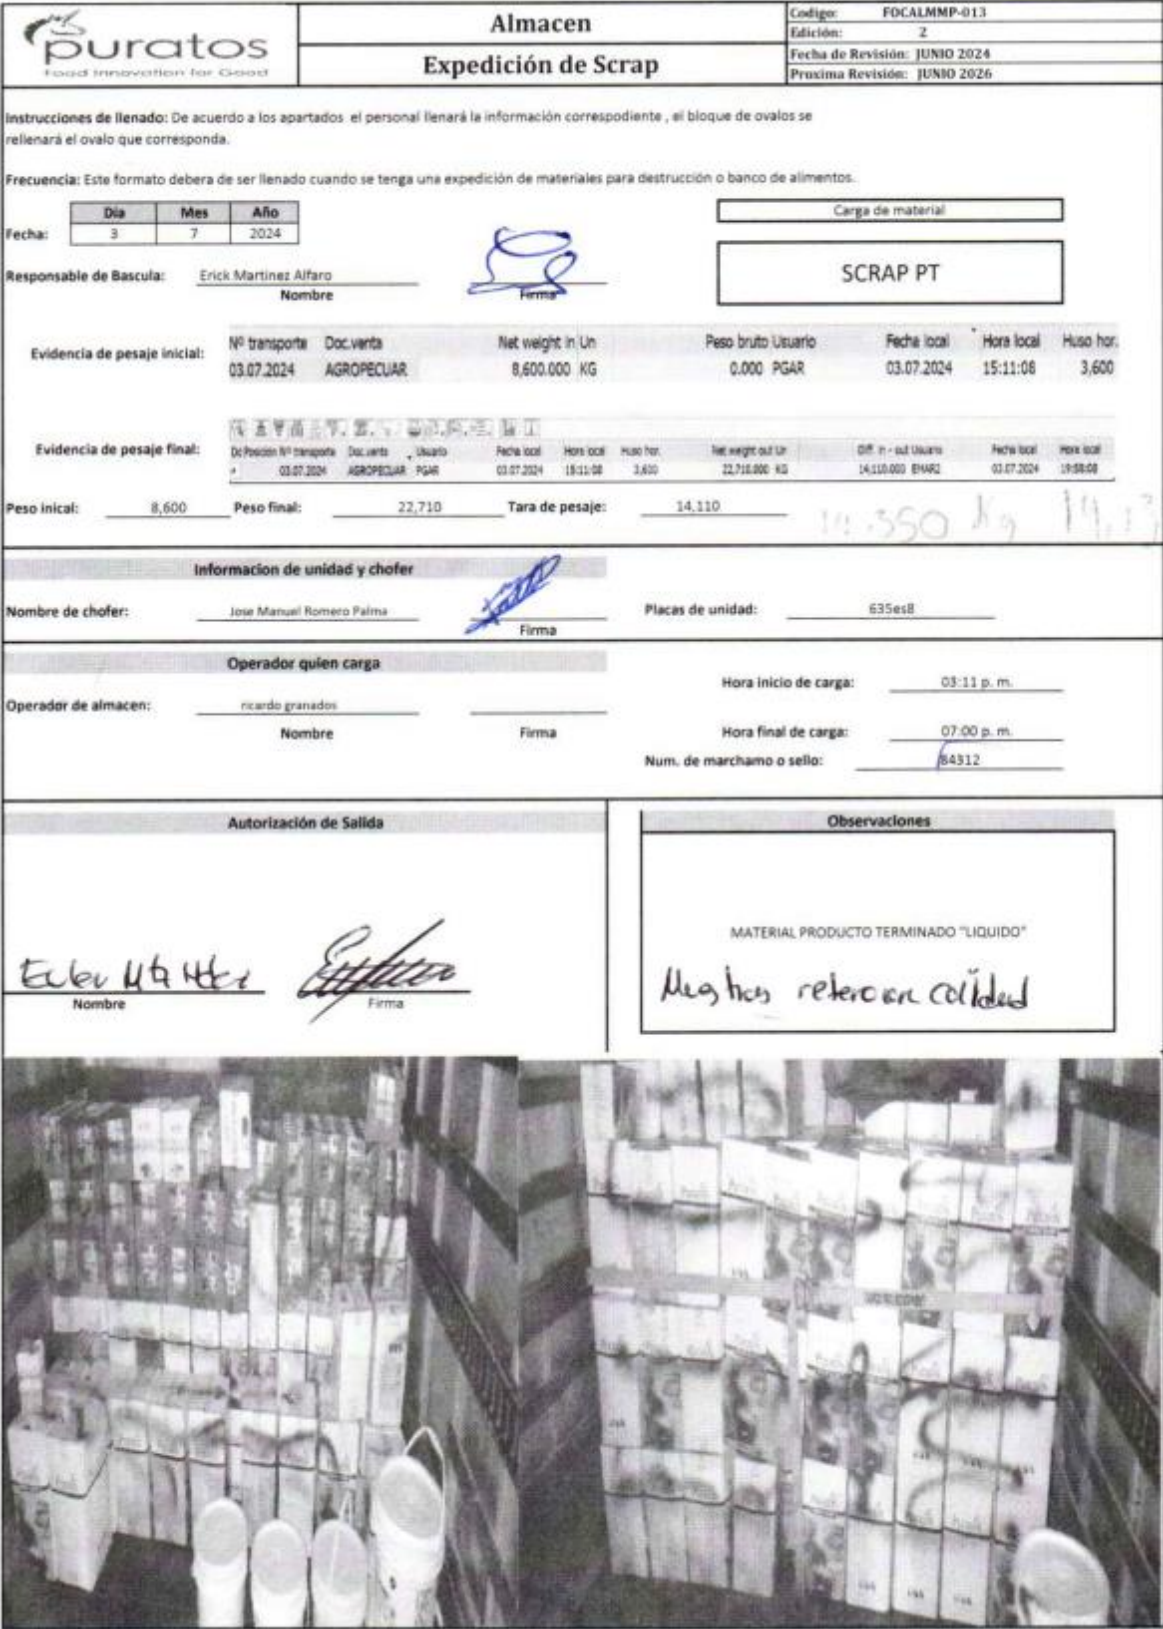 puratos
Food Innovation for Good
Almacen
Expedición de Scrap
Codigo: FOCALMMP-013
Edición: 2
Fecha de Revisión: JUNIO 2024
Proxima Revisión: JUNIO 2026
Instrucciones de llenado: De acuerdo a los apartados el personal llenará la información correspodiente , el bloque de ovalos se
rellenará el ovalo que corresponda.
Frecuencia: Este formato debera de ser llenado cuando se tenga una expedición de materiales para destrucción o banco de alimentos.
Dia Mes Año
Fecha: 3 7 2024
Carga de material
SCRAP PT
Responsable de Bascula: Erick Martinez Alfaro
Nombre Firma
Evidencia de pesaje inicial:
Nº transporte Doc.venta Net weight in Un Peso bruto Usuario Fecha local Hora local Huso hor.
03.07.2024 AGROPECUAR 8,600.000 KG 0.000 PGAR 03.07.2024 15:11:08 3,600
Evidencia de pesaje final:
Dc Posición Nº transporte Doc.venta Usuario Fecha local Hora local Huso hor. Net weight out Un Diff. in - out Usuario Fecha local Hora local
03.07.2024 AGROPECUAR PGAR 03.07.2024 15:11:08 3,600 22,710.000 KG 14,110.000 EMAR2 03.07.2024 19:58:08
Peso inical: 8,600 Peso final: 22,710 Tara de pesaje: 14,110
14.350 Kg 14,13
Informacion de unidad y chofer
Nombre de chofer: Jose Manuel Romero Palma Placas de unidad: 635es8
Firma
Operador quien carga
Hora inicio de carga: 03:11 p. m.
Operador de almacen: ricardo granados
Nombre Firma
Hora final de carga: 07:00 p. m.
Num. de marchamo o sello: 84312
Autorización de Salida
Nombre Firma
Observaciones
MATERIAL PRODUCTO TERMINADO "LIQUIDO"
retencion calidad